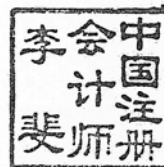 中国注册
会计师
李斐